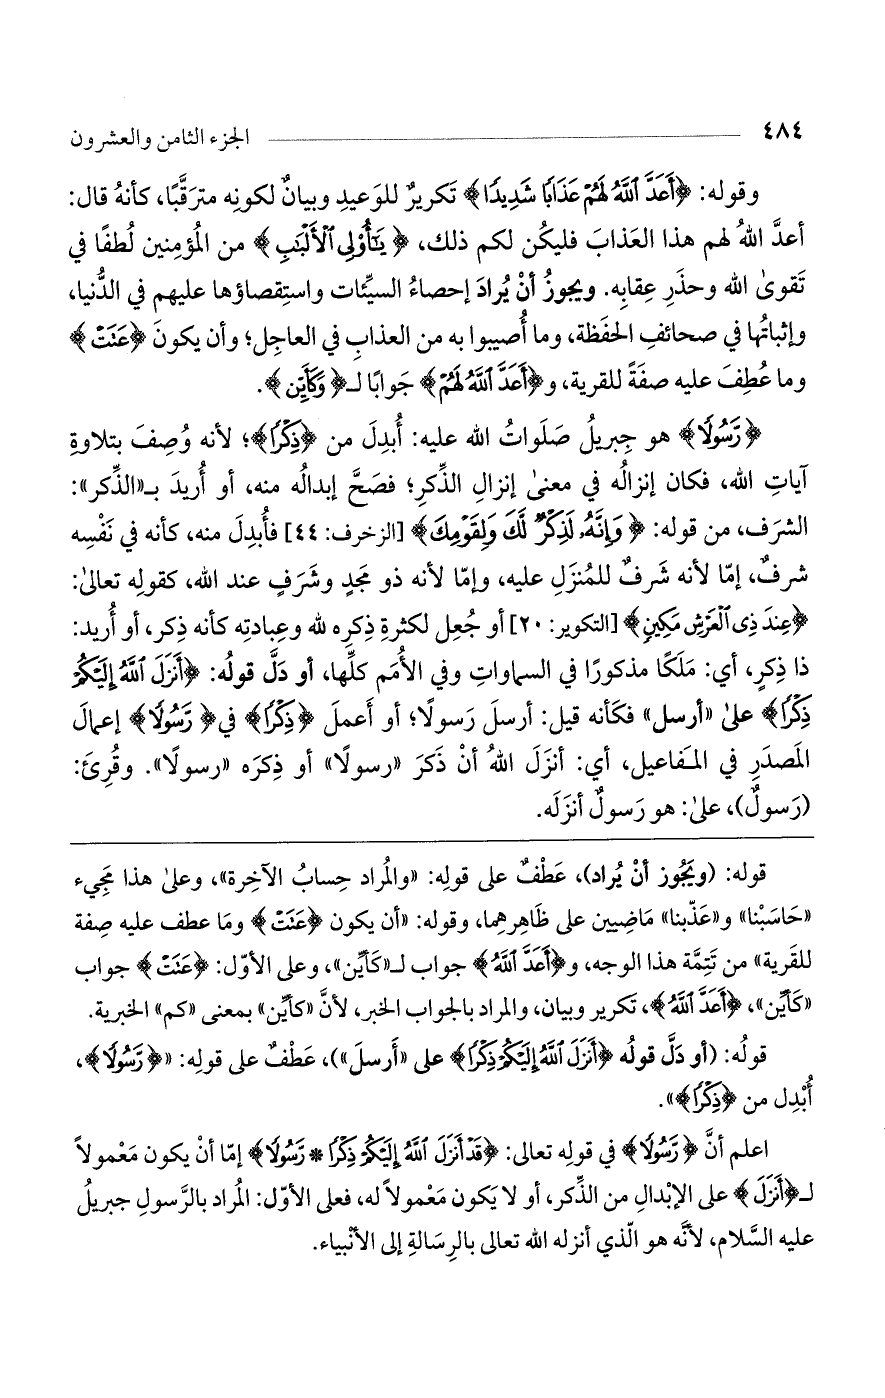 ٤٨٤ الجزء الثامن والعشرون
وقوله: ﴿أَعَدَّ ٱللَّهُ لَهُمْ عَذَابًا شَدِيدًا﴾ تَكريرٌ للوَعيدِ وبيانٌ لكونِه مترَقَّبًا، كأنهُ قال:
أعدَّ اللهُ لهم هذا العَذابَ فليكُن لكم ذلك، ﴿يَٰٓأُوْلِى ٱلْأَلْبَٰبِ﴾ من المُؤمِنين لُطفًا في
تَقوىٰ الله وحذَرِ عِقابِه. ويجوزُ أنْ يُرادَ إحصاءُ السيِّئات واستِقصاؤها عليهم في الدُّنيا،
وإثباتُها في صحائفِ الحفَظة، وما أُصيبوا به من العذابِ في العاجِل؛ وأن يكونَ ﴿عَتَتْ﴾
وما عُطِفَ عليه صفَةً للقرية، و﴿أَعَدَّ ٱللَّهُ لَهُمْ﴾ جَوابًا لـ﴿وَكَأَيِّن﴾.
﴿رَّسُولًا﴾ هو جِبريلُ صَلَواتُ الله عليه: أُبدِلَ من ﴿ذِكْرًا﴾؛ لأنه وُصِفَ بتلاوةِ
آياتِ الله، فكان إنزالُه في معنىٰ إنزالِ الذِّكرِ؛ فصَحَّ إبدالُه منه، أو أُريدَ بـ«الذِّكر»:
الشرَف، من قوله: ﴿وَإِنَّهُۥ لَذِكْرٌ لَّكَ وَلِقَوْمِكَ﴾ [الزخرف: ٤٤] فأُبدِلَ منه، كأنه في نَفْسِه
شرفٌ، إمّا لأنه شَرفٌ للمُنزَلِ عليه، وإمّا لأنه ذو مَجدٍ وشَرَفٍ عند الله، كقولِه تعالىٰ:
﴿عِندَ ذِى ٱلْعَرْشِ مَكِينٍ﴾ [التكوير: ٢٠] أو جُعِل لكثرةِ ذِكرِه لله وعِبادتِه كأنه ذِكر، أو أُريد:
ذا ذِكرٍ، أي: مَلَكًا مذكورًا في السماواتِ وفي الأُمَم كلِّها، أو دَلَّ قولُه: ﴿أَنزَلَ ٱللَّهُ إِلَيْكُمْ
ذِكْرًا﴾ علىٰ «أرسل» فكأنه قيل: أرسلَ رَسولًا؛ أو أَعملَ ﴿ذِكْرًا﴾ في﴿رَّسُولًا﴾ إعمالَ
المَصدَرِ في المـَفاعيل، أي: أنزَلَ اللهُ أنْ ذَكَرَ «رسولًا» أو ذِكرَه «رسولًا». وقُرِئَ:
(رَسولٌ)، علىٰ: هو رَسولٌ أنزَلَه.
قوله: (ويَجُوز أنْ يُراد)، عَطْفٌ على قولِه: «والمُراد حِسابُ الآخِرة»، وعلىٰ هذا مَجِيء
«حَاسَبْنا» و«عَذّبنا» مَاضِيين على ظَاهِرِهِما، وقوله: «أن يكون ﴿عَتَتْ﴾ ومَا عطف عليه صِفة
للقَرية» من تَتِمَّة هذا الوجه، و﴿أَعَدَّ ٱللَّهُ﴾ جواب لـ«كَأَيِّن»، وعلى الأوّل: ﴿عَتَتْ﴾ جواب
«كَأَيِّن»، ﴿أَعَدَّ ٱللَّهُ﴾، تكرير وبيان، والمراد بالجواب الخبر، لأنَّ «كأيّن» بمعنى «كم» الخبرية.
قولُه: (أو دَلَّ قولُه ﴿أَنزَلَ ٱللَّهُ إِلَيْكُمْ ذِكْرًا﴾ على «أَرسلَ»)، عَطْفٌ على قولِه: «﴿رَّسُولًا﴾،
أُبْدِل من ﴿ذِكْرًا﴾».
اعلم أنَّ ﴿رَّسُولًا﴾ في قولِه تعالى: ﴿قَدْ أَنزَلَ ٱللَّهُ إِلَيْكُمْ ذِكْرًا * رَّسُولًا﴾ إمّا أنْ يكون مَعْمولاً
لـ﴿أَنزَلَ﴾ على الإبْدالِ من الذِّكر، أو لا يَكون مَعْمولاً له، فعلى الأوّل: المُراد بالرَّسولِ جبريلُ
عليه السَّلام، لأنَّه هو الّذي أنزله الله تعالى بالرِسَالةِ إلى الأنْبياء.